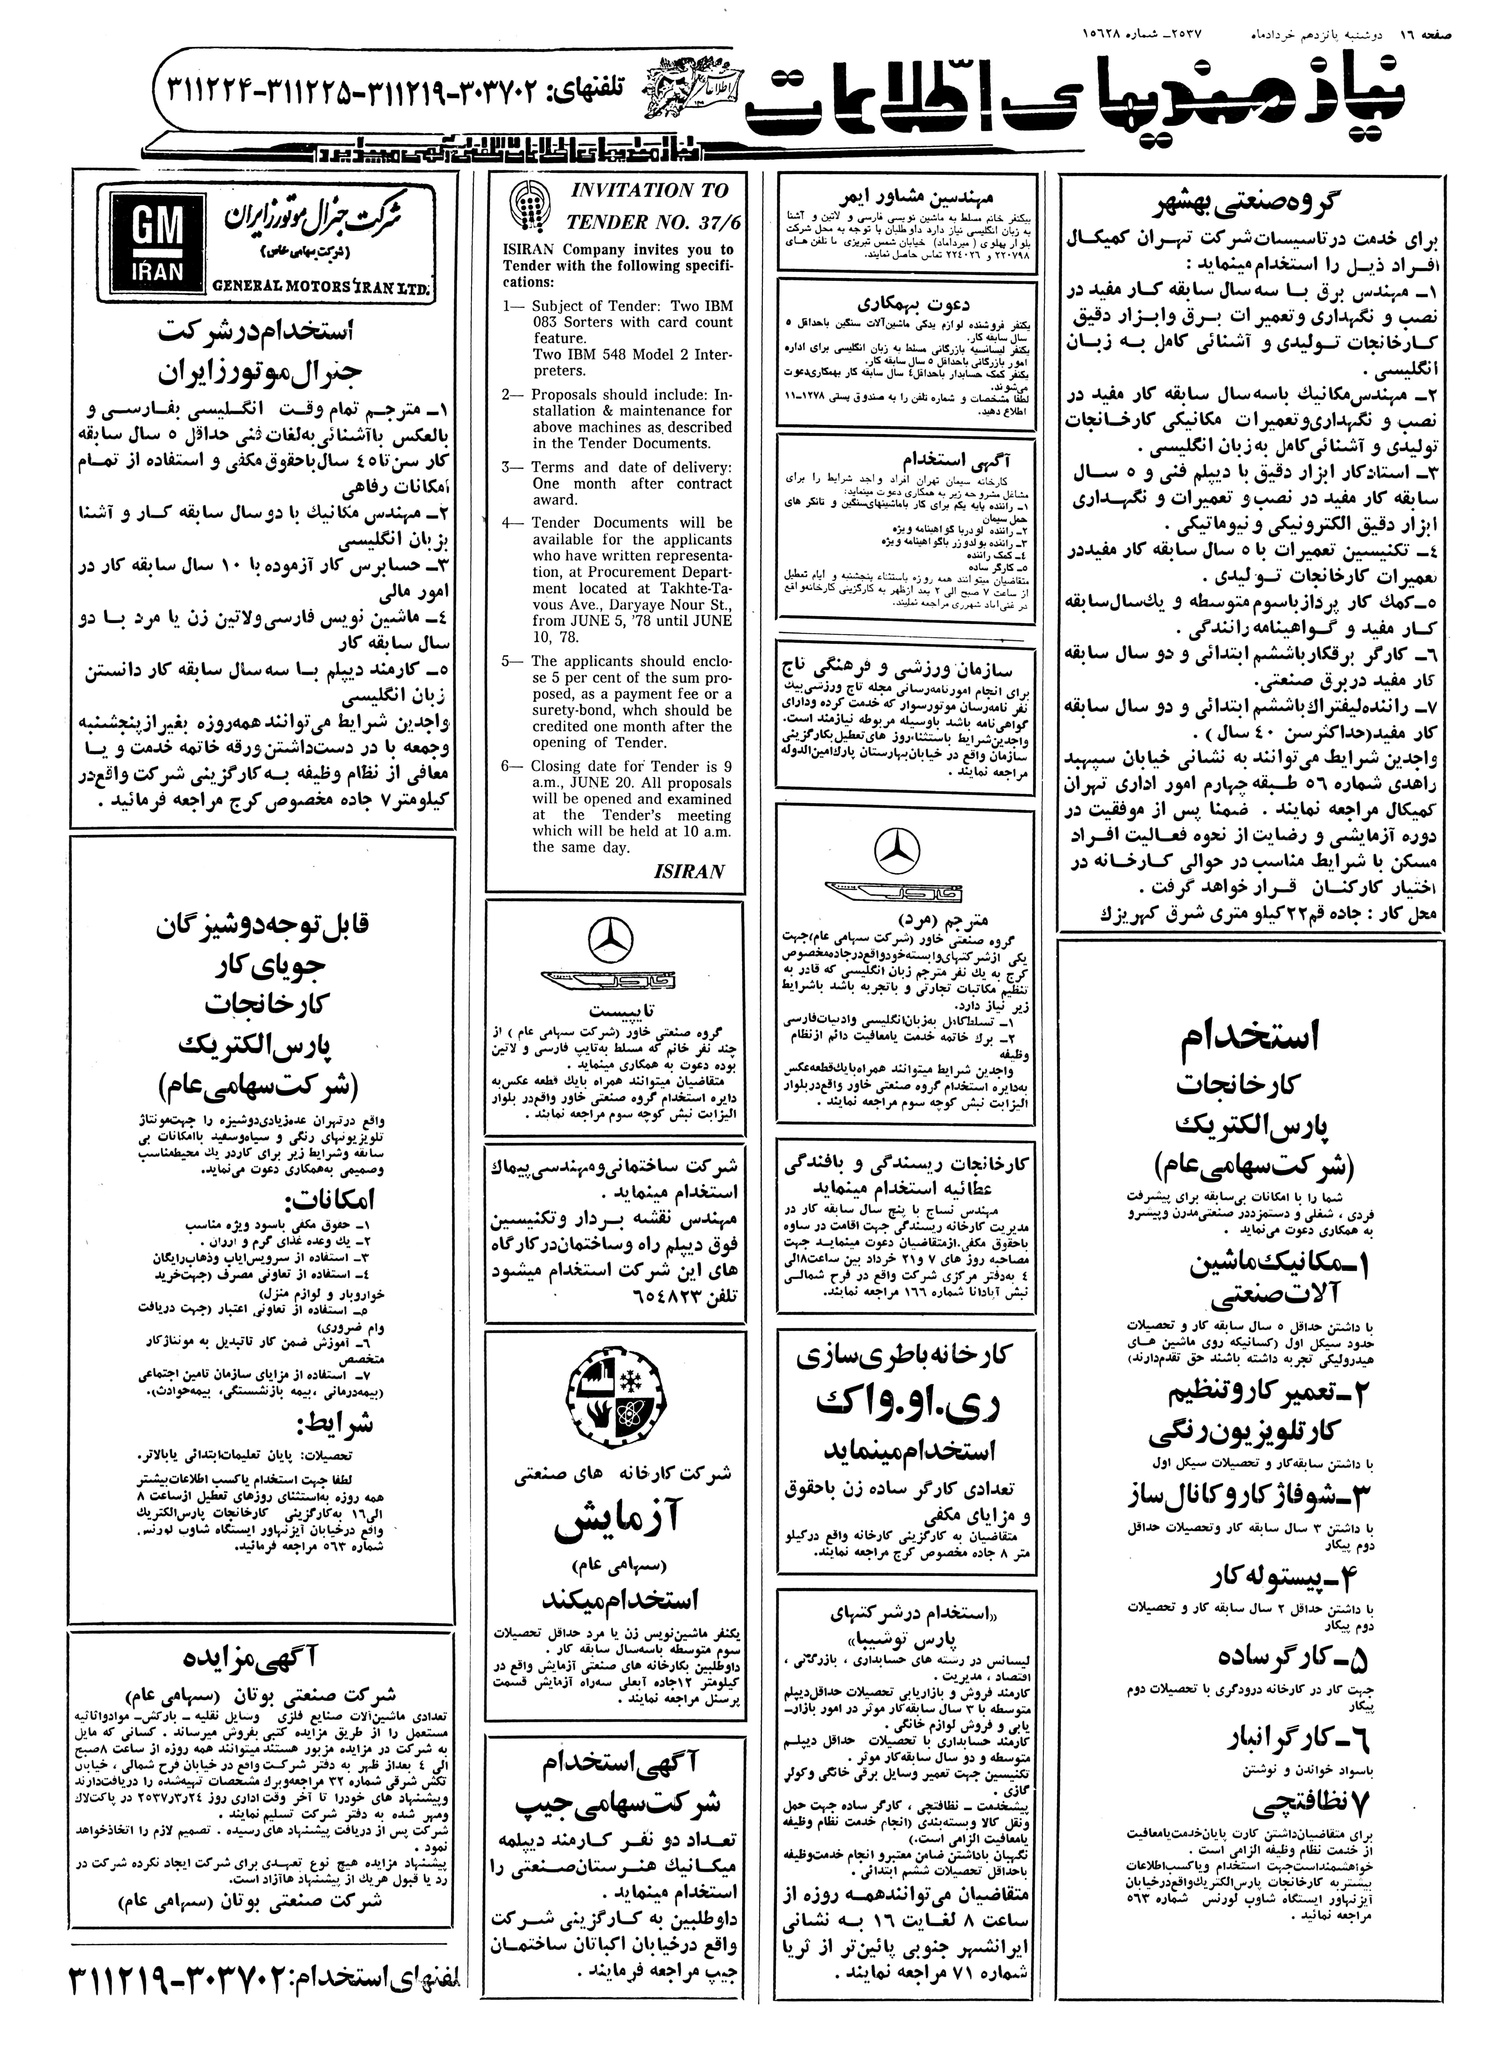 صفحه ۱۶ دوشنبه پانزدهم خردادماه ۲۵۳۷ـ شماره ۱۵۶۲۸
نیازمندیهای اطلاعات
تلفنهای: ۳۰۳۷۰۲-۳۱۱۲۱۹-۳۱۱۲۲۵-۳۱۱۲۲۴
اطلاعات
نیازمندیهای اطلاعات تلفنی آگهی میپذیرد
گروه صنعتی بهشهر
برای خدمت در تاسیسات شرکت تهران کمیکال
افراد ذیل را استخدام مینماید :
۱ـ مهندس برق با سه سال سابقه کار مفید در
نصب و نگهداری وتعمیرات برق وابزار دقیق
کارخانجات تولیدی و آشنائی کامل به زبان
انگلیسی .
۲ـ مهندس مکانیك باسه سال سابقه کار مفید در
نصب و نگهداری وتعمیرات مکانیکی کارخانجات
تولیدی و آشنائی کامل به زبان انگلیسی .
۳ـ استادکار ابزار دقیق با دیپلم فنی و ۵ سال
سابقه کار مفید در نصب و تعمیرات و نگهداری
ابزار دقیق الکترونیکی و نیوماتیکی .
۴ـ تکنیسین تعمیرات با ۵ سال سابقه کار مفیددر
تعمیرات کارخانجات تولیدی .
۵ـ کمك کار پرداز باسوم متوسطه و یك سال سابقه
کار مفید و گواهینامه رانندگی .
۶ـ کارگر برقکار باششم ابتدائی و دو سال سابقه
کار مفید در برق صنعتی.
۷ـ راننده لیفتراك باششم ابتدائی و دو سال سابقه
کار مفید (حداکثر سن ۴۰ سال) .
واجدین شرایط می‌توانند به نشانی خیابان سپهبد
زاهدی شماره ۵۶ طبقه چهارم امور اداری تهران
کمیکال مراجعه نمایند . ضمنا پس از موفقیت در
دوره آزمایشی و رضایت از نحوه فعالیت افراد
مسکن با شرایط مناسب در حوالی کارخانه در
اختیار کارکنان قرار خواهد گرفت .
محل کار : جاده قم ۲۲ کیلو متری شرق کهریزك
استخدام
کارخانجات
پارس الکتریك
(شرکت سهامی عام)
شما را با امکانات بی‌سابقه برای پیشرفت
فردی ، شغلی و دستمزددر صنعتی مدرن وپیشرو
به همکاری دعوت می‌نماید .
۱ـ مکانیك ماشین
آلات صنعتی
با داشتن حداقل ۵ سال سابقه کار و تحصیلات
حدود سیکل اول (کسانیکه روی ماشین های
هیدرولیکی تجربه داشته باشند حق تقدم‌دارند)
۲ـ تعمیر کار و تنظیم
کار تلویزیون رنگی
با داشتن سابقه‌کار و تحصیلات سیکل اول
۳ـ شوفاژ کار و کانال ساز
با داشتن ۳ سال سابقه کار وتحصیلات حداقل
دوم پیکار
۴ـ پیستوله کار
با داشتن حداقل ۲ سال سابقه کار و تحصیلات
دوم پیکار
۵ـ کارگر ساده
جهت کار در کارخانه درودگری با تحصیلات دوم
پیکار
۶ـ کارگر انبار
باسواد خواندن و نوشتن
۷ نظافتچی
برای متقاضیان‌داشتن کارت پایان‌خدمت‌یامعافیت
از خدمت نظام وظیفه الزامی است .
خواهشمنداست‌جهت استخدام ویاکسب‌اطلاعات
بیشتر به کارخانجات پارس‌الکتریك‌واقع‌درخیابان
آیزنهاور ایستگاه شاوب لورنس شماره ۵۶۳
مراجعه نمائید .
مهندسین مشاور ایمر
یکنفر خانم مسلط به ماشین نویسی فارسی و لاتین و آشنا
به زبان انگلیسی نیاز دارد داوطلبان با توجه به محل شرکت
بلوار پهلوی (میرداماد) خیابان شمس تبریزی با تلفن های
۲۲۰۷۹۸ و ۲۲۴۰۲۶ تماس حاصل نمایند.
دعوت بهمکاری
یکنفر فروشنده لوازم یدکی ماشین‌آلات سنگین باحداقل ۵
سال سابقه کار.
یکنفر لیسانسیه بازرگانی مسلط به زبان انگلیسی برای اداره
امور بازرگانی باحداقل ۵ سال سابقه کار.
یکنفر کمک حسابدار باحداقل ۴ سال سابقه کار بهمکاری دعوت
می‌شوند.
لطفا مشخصات و شماره تلفن را به صندوق پستی ۱۲۷۸ـ۱۱
اطلاع دهید.
آگهی استخدام
کارخانه سیمان تهران افراد واجد شرایط را برای
مشاغل مشروحه زیر به همکاری دعوت مینماید:
۱ـ راننده پایه یکم برای کار باماشینهای سنگین و تانکر های
حمل سیمان
۲ـ راننده لودربا گواهینامه ویژه
۳ـ راننده بولدوزر باگواهینامه ویژه
۴ـ کمک راننده
۵ـ کارگر ساده
متقاضیان میتوانند همه روزه باستثناء پنجشنبه و ایام تعطیل
از ساعت ۷ صبح الی ۲ بعد ازظهر به کارگزینی کارخانه‌واقع
در غنی‌آباد شهرری مراجعه نمایند.
سازمان ورزشی و فرهنگی تاج
برای انجام امورنامه‌رسانی مجله تاج ورزشی‌بیك
نفر نامه‌رسان موتورسوار که خدمت کرده ودارای
گواهی‌نامه باشد باوسیله مربوطه نیازمند است.
واجدین‌شرایط باستثناء‌روز های‌تعطیل‌بکارگزینی
سازمان واقع در خیابان‌بهارستان پارك‌امین‌الدوله
مراجعه نمایند .
مترجم (مرد)
گروه صنعتی خاور (شرکت سهامی عام)جهت
یکی ازشرکتهای‌وابسته‌خودواقع‌درجاده‌مخصوص
کرج به یك نفر مترجم زبان انگلیسی که قادر به
تنظیم مکاتبات تجارتی و باتجربه باشد باشرایط
زیر نیاز دارد.
۱ـ تسلط‌کامل به‌زبان‌انگلیسی وادبیات‌فارسی
۲ـ برك خاتمه خدمت یامعافیت دائم ازنظام
وظیفه
واجدین شرایط میتوانند همراه‌بایك‌قطعه‌عکس
به‌دایره استخدام گروه صنعتی خاور واقع‌دربلوار
الیزابت نبش کوچه سوم مراجعه نمایند .
کارخانجات ریسندگی و بافندگی
عطائیه استخدام مینماید
مهندس نساج با پنج سال سابقه کار در
مدیریت کارخانه ریسندگی جهت اقامت در ساوه
باحقوق مکفی.ازمتقاضیان دعوت مینماید جهت
مصاحبه روز های ۷ و۲۱ خرداد بین ساعت۸الی
۴ به‌دفتر مرکزی شرکت واقع در فرح شمالی
نبش آبادانا شماره ۱۶۶ مراجعه نمایند.
کارخانه باطری سازی
ری.او.واك
استخدام مینماید
تعدادی کارگر ساده زن باحقوق
و مزایای مکفی
متقاضیان به کارگزینی کارخانه واقع درکیلو
متر ۸ جاده مخصوص کرج مراجعه نمایند.
«استخدام در شرکتهای
پارس توشیبا»
لیسانس در رسته های حسابداری ، بازرگانی ،
اقتصاد ، مدیریت .
کارمند فروش و بازاریابی تحصیلات حداقل‌دیپلم
متوسطه با ۳ سال سابقه‌کار موثر در امور بازار-
یابی و فروش لوازم خانگی .
کارمند حسابداری با تحصیلات حداقل دیپلم
متوسطه و دو سال سابقه‌کار موثر .
تکنیسین جهت تعمیر وسایل برقی خانگی وکولر
گازی .
پیشخدمت ـ نظافتچی ، کارگر ساده جهت حمل
ونقل کالا وبسته‌بندی (انجام خدمت نظام وظیفه
یامعافیت الزامی است.)
نگهبان باداشتن ضامن معتبرو انجام خدمت‌وظیفه
باحداقل تحصیلات ششم ابتدائی .
متقاضیان می‌توانندهمه روزه از
ساعت ۸ لغایت ۱۶ به نشانی
ایرانشهر جنوبی پائین‌تر از ثریا
شماره ۷۱ مراجعه نمایند .
INVITATION TO
TENDER NO. 37/6
ISIRAN Company invites you to
Tender with the following specifi-
cations:
1— Subject of Tender: Two IBM
083 Sorters with card count
feature.
Two IBM 548 Model 2 Inter-
preters.
2— Proposals should include: In-
stallation & maintenance for
above machines as described
in the Tender Documents.
3— Terms and date of delivery:
One month after contract
award.
4— Tender Documents will be
available for the applicants
who have written representa-
tion, at Procurement Depart-
ment located at Takhte-Ta-
vous Ave., Daryaye Nour St.,
from JUNE 5, '78 until JUNE
10, 78.
5— The applicants should enclo-
se 5 per cent of the sum pro-
posed, as a payment fee or a
surety-bond, whch should be
credited one month after the
opening of Tender.
6— Closing date for Tender is 9
a.m., JUNE 20. All proposals
will be opened and examined
at the Tender's meeting
which will be held at 10 a.m.
the same day.
ISIRAN
تایپیست
گروه صنعتی خاور (شرکت سهامی عام ) از
چند نفر خانم که مسلط به‌تایپ فارسی و لاتین
بوده دعوت به همکاری مینماید .
متقاضیان میتوانند همراه بایك قطعه عکس‌به
دایره استخدام گروه صنعتی خاور واقع‌در بلوار
الیزابت نبش کوچه سوم مراجعه نمایند .
شرکت ساختمانی و مهندسی پیماك
استخدام مینماید .
مهندس نقشه بردار وتکنیسین
فوق دیپلم راه وساختمان‌در کارگاه
های این شرکت استخدام میشود
تلفن ۶۵۴۸۲۳
شرکت کارخانه های صنعتی
آزمایش
(سهامی عام)
استخدام میکند
یکنفر ماشین‌نویس زن یا مرد حداقل تحصیلات
سوم متوسطه باسه‌سال سابقه کار .
داوطلبین بکارخانه های صنعتی آزمایش واقع در
کیلومتر ۱۲جاده آبعلی سه‌راه آزمایش قسمت
پرسنل مراجعه نمایند .
آگهی استخدام
شرکت سهامی جیپ
تعداد دو نفر کارمند دیپلمه
میکانیك هنرستان صنعتی را
استخدام مینماید .
داوطلبین به کارگزینی شرکت
واقع درخیابان اکباتان ساختمان
جیپ مراجعه فرمایند .
GM
IRAN
شرکت جنرال موتورز ایران
(شرکت سهامی خاص)
GENERAL MOTORS IRAN LTD.
استخدام در شرکت
جنرال موتورز ایران
۱ـ مترجم تمام وقت انگلیسی بفارسی و
بالعکس باآشنائی به‌لغات فنی حداقل ۵ سال سابقه
کار سن تا۴۵ سال باحقوق مکفی و استفاده از تمام
امکانات رفاهی
۲ـ مهندس مکانیك با دو سال سابقه کار و آشنا
بزبان انگلیسی
۳ـ حسابرس کار آزموده با ۱۰ سال سابقه کار در
امور مالی
۴ـ ماشین نویس فارسی ولاتین زن یا مرد با دو
سال سابقه کار
۵ـ کارمند دیپلم با سه سال سابقه کار دانستن
زبان انگلیسی
واجدین شرایط می‌توانند همه‌روزه بغیر از پنجشنبه
وجمعه با در دست داشتن ورقه خاتمه خدمت و یا
معافی از نظام وظیفه به کارگزینی شرکت واقع‌در
کیلومتر ۷ جاده مخصوص کرج مراجعه فرمائید .
قابل توجه دوشیزگان
جویای کار
کارخانجات
پارس الکتریك
(شرکت سهامی عام)
واقع درتهران عده‌زیادی‌دوشیزه را جهت‌مونتاژ
تلویزیونهای رنگی و سیاه‌وسفید باامکانات بی
سابقه وشرایط زیر برای کاردر یك محیط‌مناسب
وصمیمی به‌همکاری دعوت می‌نماید.
امکانات:
۱ـ حقوق مکفی باسود ویژه مناسب
۲ـ یك وعده غذای گرم و ارزان .
۳ـ استفاده از سرویس‌ایاب وذهاب‌رایگان
۴ـ استفاده از تعاونی مصرف (جهت‌خرید
خواروبار و لوازم منزل)
۵ـ استفاده از تعاونی اعتبار (جهت دریافت
وام ضروری)
۶ـ آموزش ضمن کار تاتبدیل به مونتاژکار
متخصص
۷ـ استفاده از مزایای سازمان تامین اجتماعی
(بیمه‌درمانی ،بیمه بازنشستگی، بیمه‌حوادث).
شرایط:
تحصیلات: پایان تعلیمات‌ابتدائی یابالاتر.
لطفا جهت استخدام یاکسب اطلاعات‌بیشتر
همه روزه به‌استثنای روزهای تعطیل ازساعت ۸
الی۱۶ به‌کارگزینی کارخانجات پارس‌الکتریك
واقع درخیابان آیزنهاور ایستگاه شاوب لورنس
شماره ۵۶۳ مراجعه فرمائید.
آگهی مزایده
شرکت صنعتی بوتان (سهامی عام)
تعدادی ماشین‌آلات صنایع فلزی وسایل نقلیه ـ بارکش- موادواثاثیه
مستعمل را از طریق مزایده کتبی بفروش میرساند . کسانی که مایل
به شرکت در مزایده مزبور هستند میتوانند همه روزه از ساعت ۸صبح
الی ۴ بعداز ظهر به دفتر شرکت واقع در خیابان فرح شمالی ، خیابان
تکش شرقی شماره ۳۲ مراجعه‌وبرك مشخصات تهیه‌شده را دریافت‌دارند
وپیشنهاد های خودرا تا آخر وقت اداری روز ۲۵۳۷ر۳ر۲۴ در پاکت‌لاك
ومهر شده به دفتر شرکت تسلیم نمایند .
شرکت پس از دریافت پیشنهاد های رسیده . تصمیم لازم را اتخاذخواهد
نمود .
پیشنهاد مزایده هیچ نوع تعهدی برای شرکت ایجاد نکرده شرکت در
رد یا قبول هریك از پیشنهاد هاآزاد است.
شرکت صنعتی بوتان (سهامی عام)
تلفنهای استخدام: ۳۰۳۷۰۲-۳۱۱۲۱۹